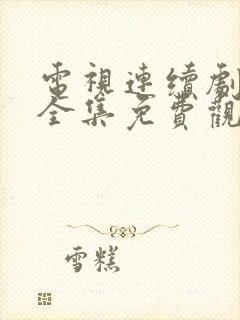 電視連續劇
全集免費觀
雪糕